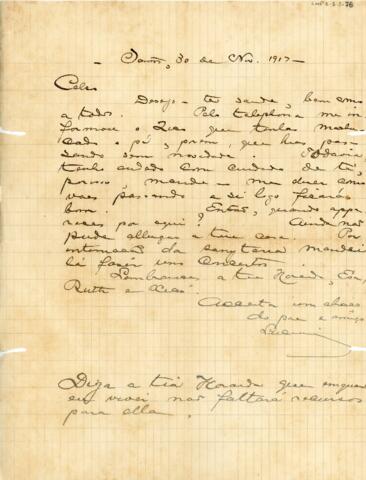 Santos, 30 de Nov. 1917 –
Celso
Desejo-te saude, bem como
a todos. Pelo telephone me in
formou o que tenhas mach
cado o pé, porem, que hias pas
sando sem novidade. Todavia
tenho cuidado com cuidado de ti,
por isso, mande-me dizer como
vaes passando e si logo ficarás
bom. Então, quando appa
reces por aqui? Ainda não
pude allugar a tua casa. Por
intermedio da mandei
lá fazer uns concertos
Lembranças a tia Horacia, 
Ruth e
Acceita um abraço
do pae e amigo
Diga a tia Horacia que emquan
eu viver não faltará recursos
para ella.